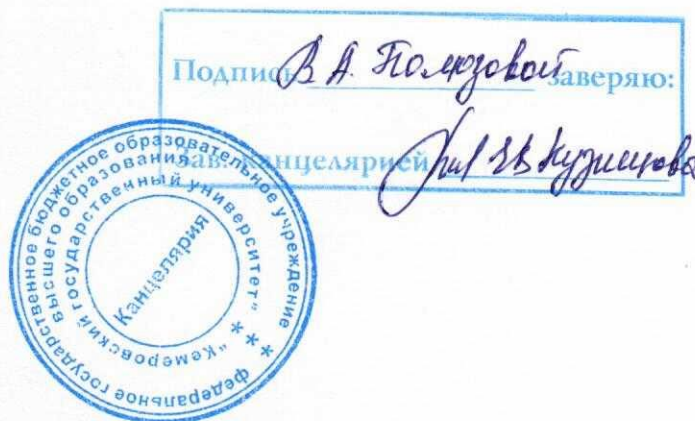 Подпись В.А. Полюзовой заверяю:
Зав. канцелярией Е.В. Кузнецова
федеральное государственное бюджетное образовательное учреждение
высшего образования
"Кемеровский государственный университет"
Канцелярия